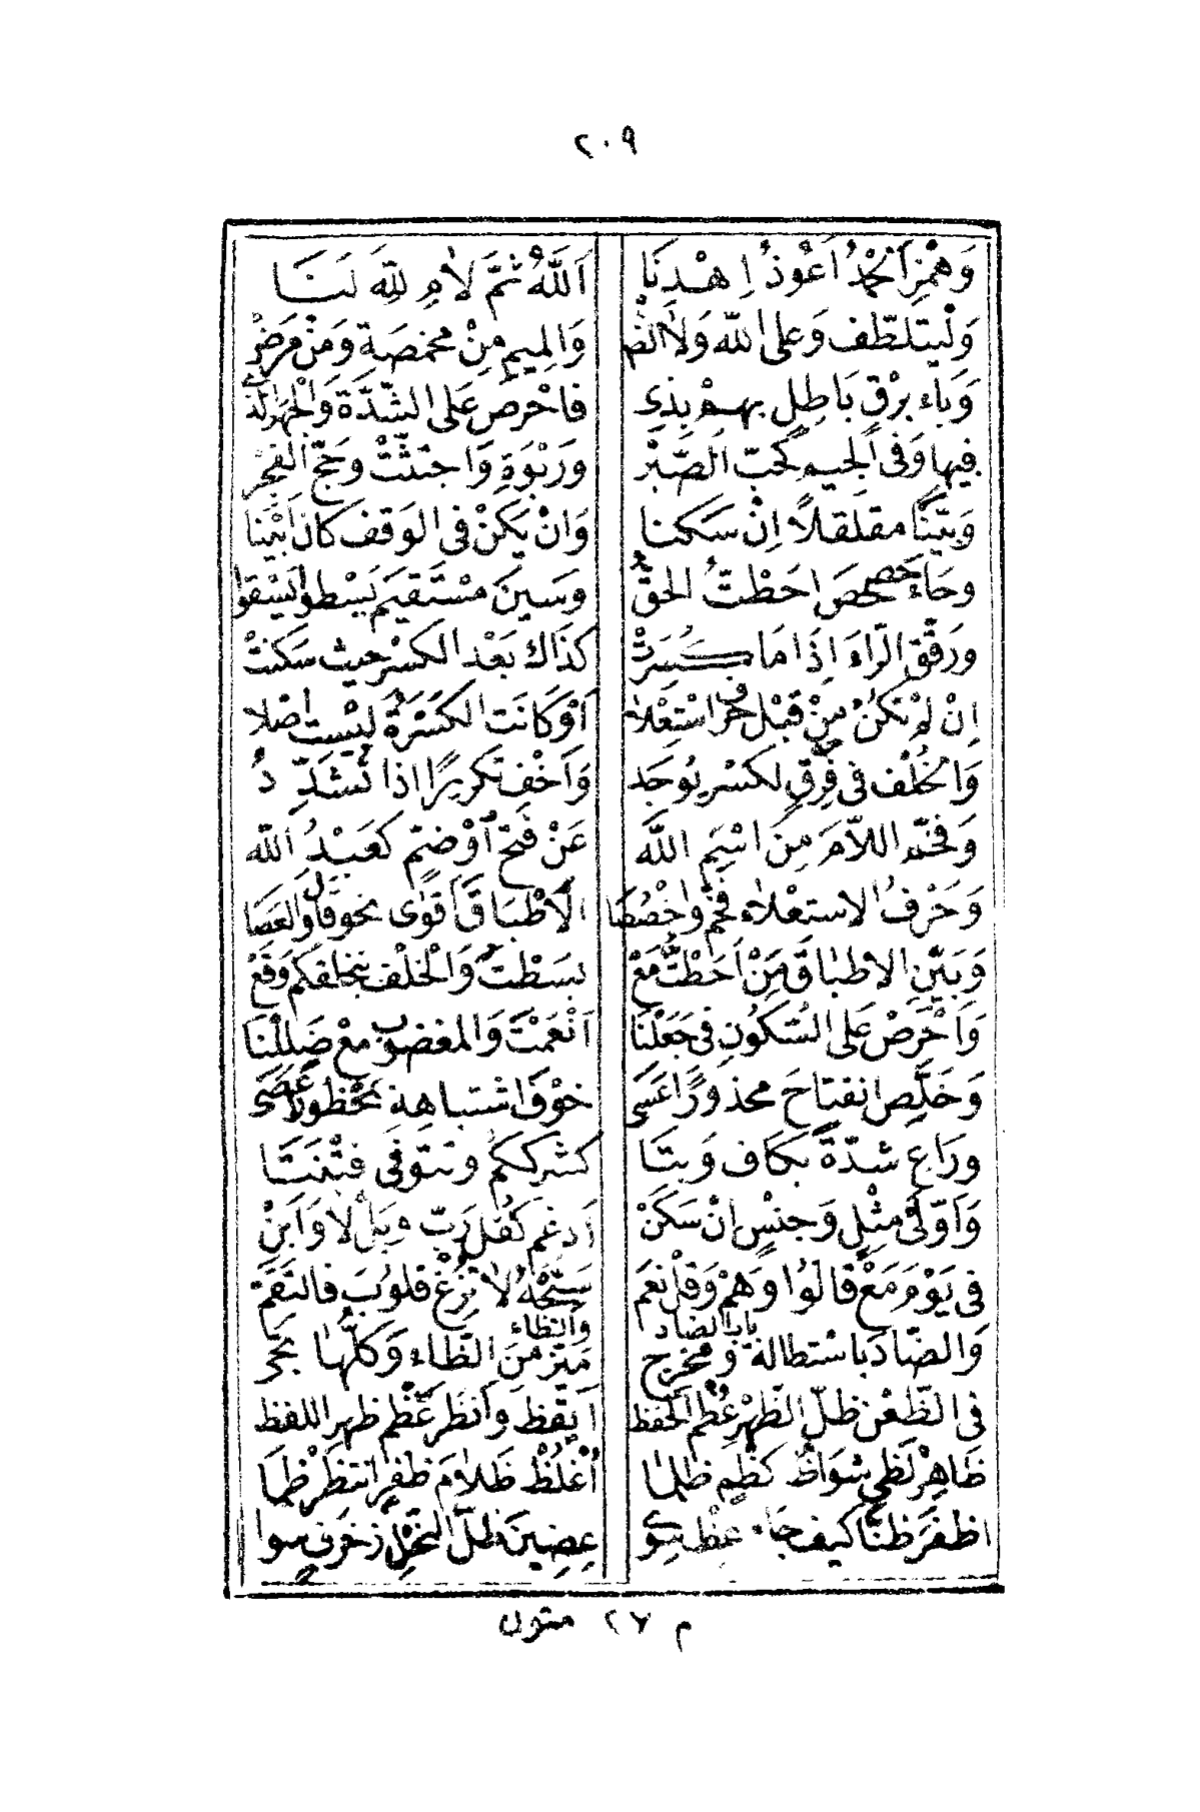 ٢٠٩
وَهَمْزِ اَلْحَمْدُ اَعُوذُ اِهْدِنَا اَللّٰهُ ثُمَّ لاٰمِ لِلّٰهِ لَنَـــا
وَلْيَتَلَطَّف وَعلى اللّٰه وَلاَ الضّ وَالمِيمِ مِنْ مَخْمَصَةٍ وَمِنْ مَرَضْ
وَبَاء بَرْقٍ بَاطِلٍ بِهِمْ بِذِي فاحْرِصْ عَلى الشِّدَّةِ وَالْجَهْرِ الَّذِي
فيهاِ وَفى الْجِيمِ كَحُبِّ الصَّبْرِ وَرَبْوَةٍ وَاجْتُثَّتْ وَحَجِّ الفَجْرِ
وَبَيِّنًا مقلقلاً اِنْ سَكَنا وَانْ يَكُنْ فى الوَقف كانَ اَبْيَنا
وحَاءَ حَصْحَصَ اَحَطْتُ الحَقُّ وَسِينَ مُسْتَقيم يَسْطو يَسْقوا
ورَقِّقِ الرَّاءَ اِذَا مَا كُسِرَتْ كذَاكَ بَعْد الكَسْرِ حيث سَكَنَتْ
اِنْ لَمْ تَكُنْ مِنْ قَبْل حرف اسْتِعْلاَء اَوْ كَانَت الكَسْرَةُ لَيْسَت اَصْلا
وَالخُلْف فى فِرْقٍ لكسْرٍ يُوجَد وَاَخْفِ تكريرًا اذا تُشَدّدُ
وَفَخِّمِ اللاّمَ مِنَ اسْمِ اللّٰه عَنْ فَتحٍ اَوْ ضَمٍّ كعَبْدُ اللّٰه
وَحَرْفُ الاستعْلاء فخِّمْ وَاخْصُصَا الْاطْبَاق اَقوٰى نحو قال والعَصَا
وَبَيِّنِ الاطباقَ مِنْ اَحَطْتُ مَعْ بَسَطْتَ وَالْخلْف بِنَخلقكم وَقَعْ
وَاحْرِصْ عَلى السُّكُونِ فى جَعَلْنَا اَنْعَمْتَ وَالمغضوب مَعْ ضَلَلْنَا
وَخَلِّصِ انفتاحَ محذورًا عَسَى خوْفَ اشتباهِهِ بمَحْظورًا عَصَى
ورَاعِ شدّةً بكَاف وَبتَا كشركِكُم وتتوَفى فتْنَتَا
وَاَوَّلَىْ مِثْلٍ وَجِنْسٍ انْ سَكَنْ اَدغِم كقُل رَبّ وبَلْ لا وَاَبِنْ
فى يَوْمِ مَعْ قالوُا وَهُمْ وَقلْ نعَم سَبِّحْهُ لاَ تُزِغْ قلوُبَ فالتقَمْ
باب الضاد والظاء
وَالضّادَ باسْتطالة وَمخرَج مَيِّز مِنَ الظَّاءِ وَكُلُّها تَجى
فى الظَّعْن ظلّ الظُّهْر عُظْم الحفظ اَيْقظ وَاَنظر عَظْم ظهر اللفظ
ظَاهِرْ لَظى شوَاظُ كَظْم ظلمَا اُغْلظْ ظَلاَمَ ظفر انتظرْ ظمَا
اظفَرَ ظنًّا كيف جَاء عِظْ سِوى عِضِينَ ظلَّ النَّحْلِ زخرف سوا
م ٢٧ متون